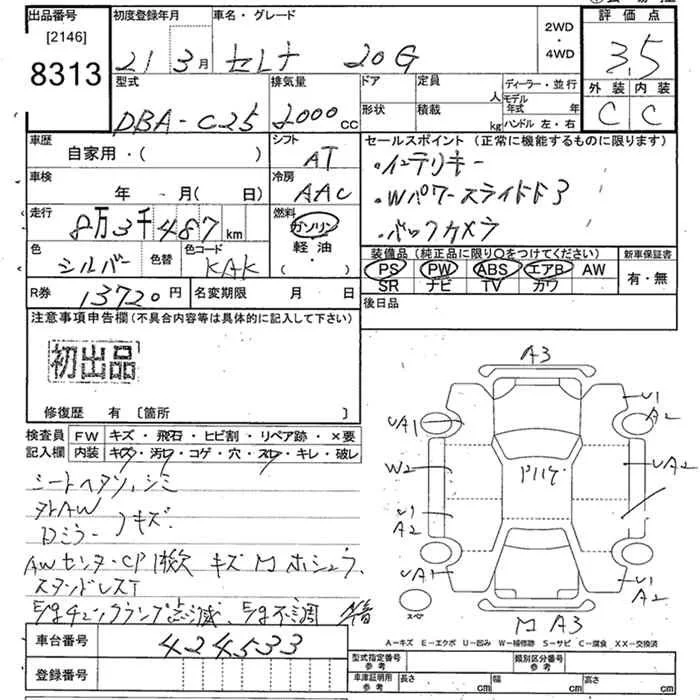 出品番号
[2146]
8313
初度登録年月
21 3月
車名・グレード
セレナ 20G
2WD
・
4WD
評価点
3.5
外装 内装
C C
型式
DBA-C25
排気量
2000cc
ドア
形状
定員
人
積載
kg
ディーラー・並行
モデル
年式 年
ハンドル 左・右
車歴
自家用・( )
シフト
AT
セールスポイント (正常に機能するものに限ります)
・インテリキー
・Wパワースライドドア
・バックカメラ
車検
年 月( 日)
冷房
AAC
走行
8万3千487km
燃料
ガソリン
軽油
( ・ )
色
シルバー
色替
色コード
KAK
装備品 (純正品に限り○をつけてください)
PS PW ABS エアB AW
SR ナビ TV カワ
新車保証書
有・無
R券
13720円
名変期限 月 日
後日品
注意事項申告欄(不具合内容等は具体的に記入して下さい)
初出品
修復歴 有 〔箇所 〕
検査員
記入欄
FW キズ・飛石・ヒビ割・リペア跡・×要
内装 キズ・汚レ・コゲ・穴・スレ・キレ・破レ
シートヘタリ、シミ
キズ
AWセンターCP1枚欠
スタンドレスT
車台番号
424533
登録番号
A3
U1
A2
UA1
W2
UA2
U1
A2
UA1
U1
A2
スペア
A3
A-キズ E-エクボ U-凹み W-補修跡 S-サビ C-腐食 XX-交換済
型式指定番号
参考
類別区分番号
参考
車庫証明用
参考
長さ cm 幅 cm 高さ cm